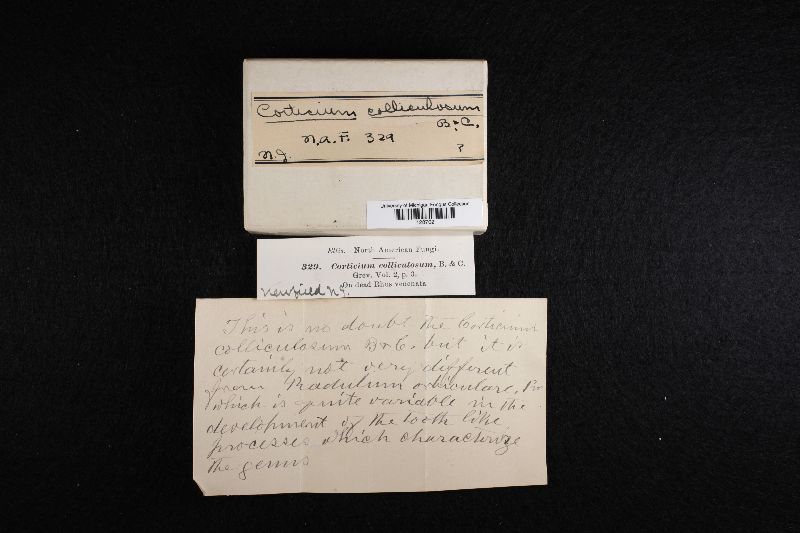 Corticium colliculosum
B&C.
N.A.F. 329
N.J. ?
University of Michigan Fungus Collection
Ellis. North American Fungi.
329. Corticium colliculosum, B. & C.
Grev. Vol. 2, p. 3.
On dead Rhus venenata
Newfield N.J.
This is no doubt the Corticium
colliculosum B&C. but it is
certainly not very different
from Radulum orbiculare, Fr.
which is quite variable in the
development of the tooth like
processes which characterize
the genus